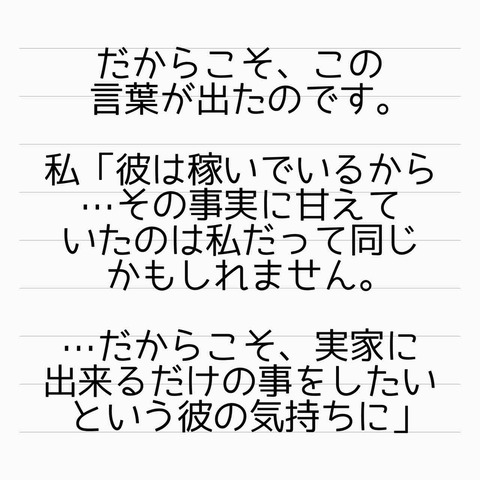 だからこそ、この
言葉が出たのです。
私「彼は稼いでいるから
…その事実に甘えて
いたのは私だって同じ
かもしれません。
…だからこそ、実家に
出来るだけの事をしたい
という彼の気持ちに」